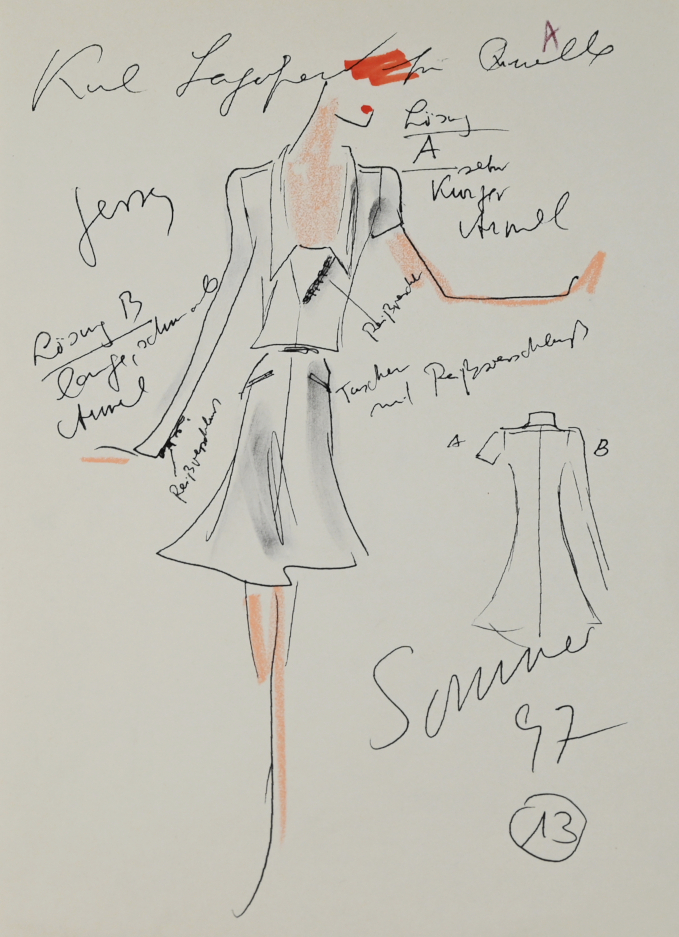 A
Karl Lagerfeld für Quelle
Lösung
A
sehr
Kurzer
Ärmel
Jersey
Lösung B
lange, schmale
Ärmel
Reißverschluss
Taschen
mit Reißverschluß
Reißverschluss
A
B
Sommer
97
13